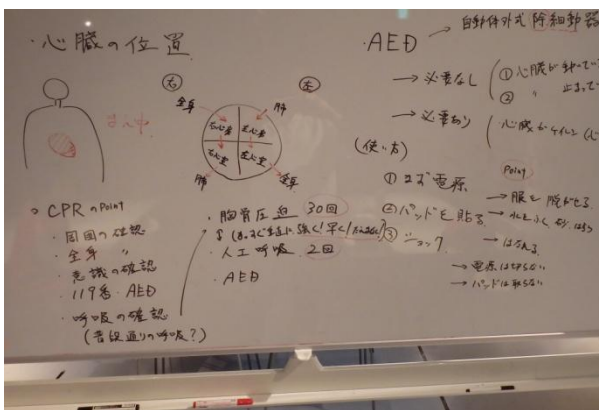 ・心臓の位置
まん中
右
左
全身
肺
右心房
左心房
右心室
左心室
肺
全身
○ CPRのPoint
・周囲の確認
・全身 〃
・意識の確認
・119番・AED
・呼吸の確認
(普段通りの呼吸?)
・胸骨圧迫 30回
強く/早く/
・人工呼吸 2回
・AED
・AED → 自動体外式除細動器
→ 必要なし ① 心臓が
② 〃 止まって
→ 必要あり 心臓が
(使い方)
Point
① まず電源
→ 服を脱がせる
② パッドを貼る → 水をふく
③ ショック → はなれる
→ 電源は切らない
→ パッドは取らない